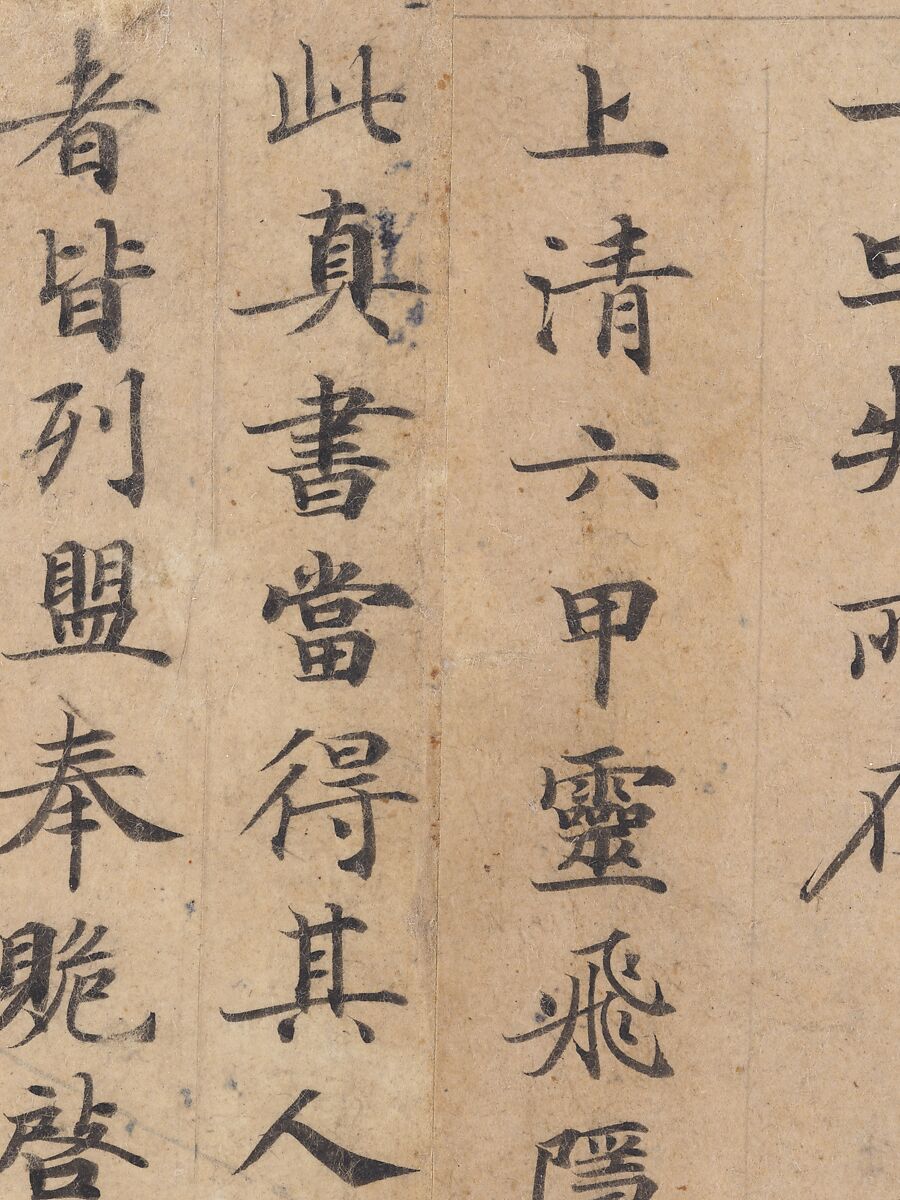 上清六甲靈飛隱
此真書當得其人
者皆列盟奉賍啓